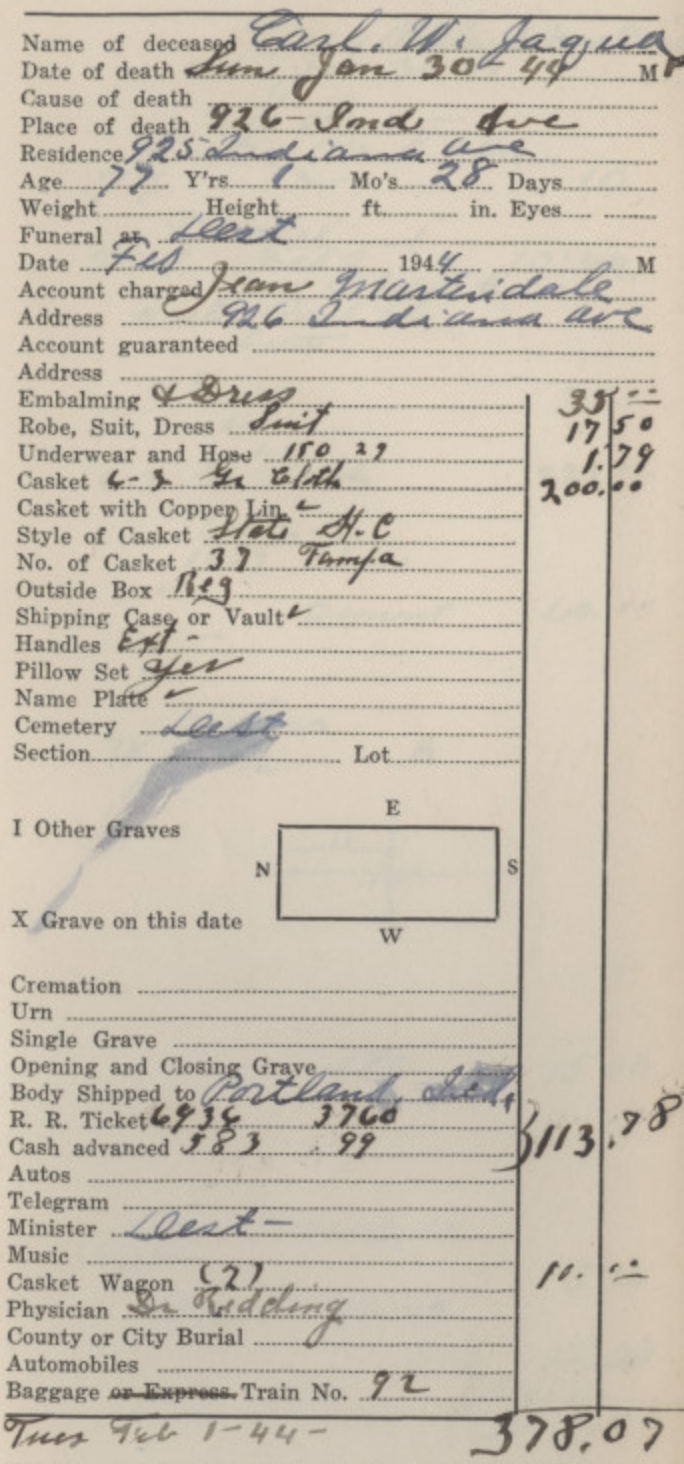 Name of deceased Carl. W. Jaqua
Date of death Sun Jan 30 - 44 M
Cause of death
Place of death 926 - Ind Ave
Residence 925 Indiana Ave
Age 77 Y'rs 1 Mo's 28 Days
Weight Height ft. in. Eyes
Funeral at Dest
Date Feb 1944 M
Account charged Jean Martindale
Address 926 Indiana Ave
Account guaranteed
Address
Embalming & Dress 35 --
Robe, Suit, Dress Suit 17 50
Underwear and Hose 150 29 1.79
Casket 6-3 Gr Cloth 200.00
Casket with Copper Lin. ✓
Style of Casket State H.C
No. of Casket 37 Tampa
Outside Box Reg
Shipping Case or Vault ✓
Handles Ext -
Pillow Set Yes
Name Plate ✓
Cemetery Dest
Section Lot
E
I Other Graves
N S
X Grave on this date
W
Cremation
Urn
Single Grave
Opening and Closing Grave
Body Shipped to Portland, Ind.
R. R. Ticket 6936 3760
Cash advanced 583 .99 } 113.78
Autos
Telegram
Minister Dest -
Music
Casket Wagon (2) 10. --
Physician Dr Redding
County or City Burial
Automobiles
Baggage or Express. Train No. 92
Tues Feb 1-44- 378.07